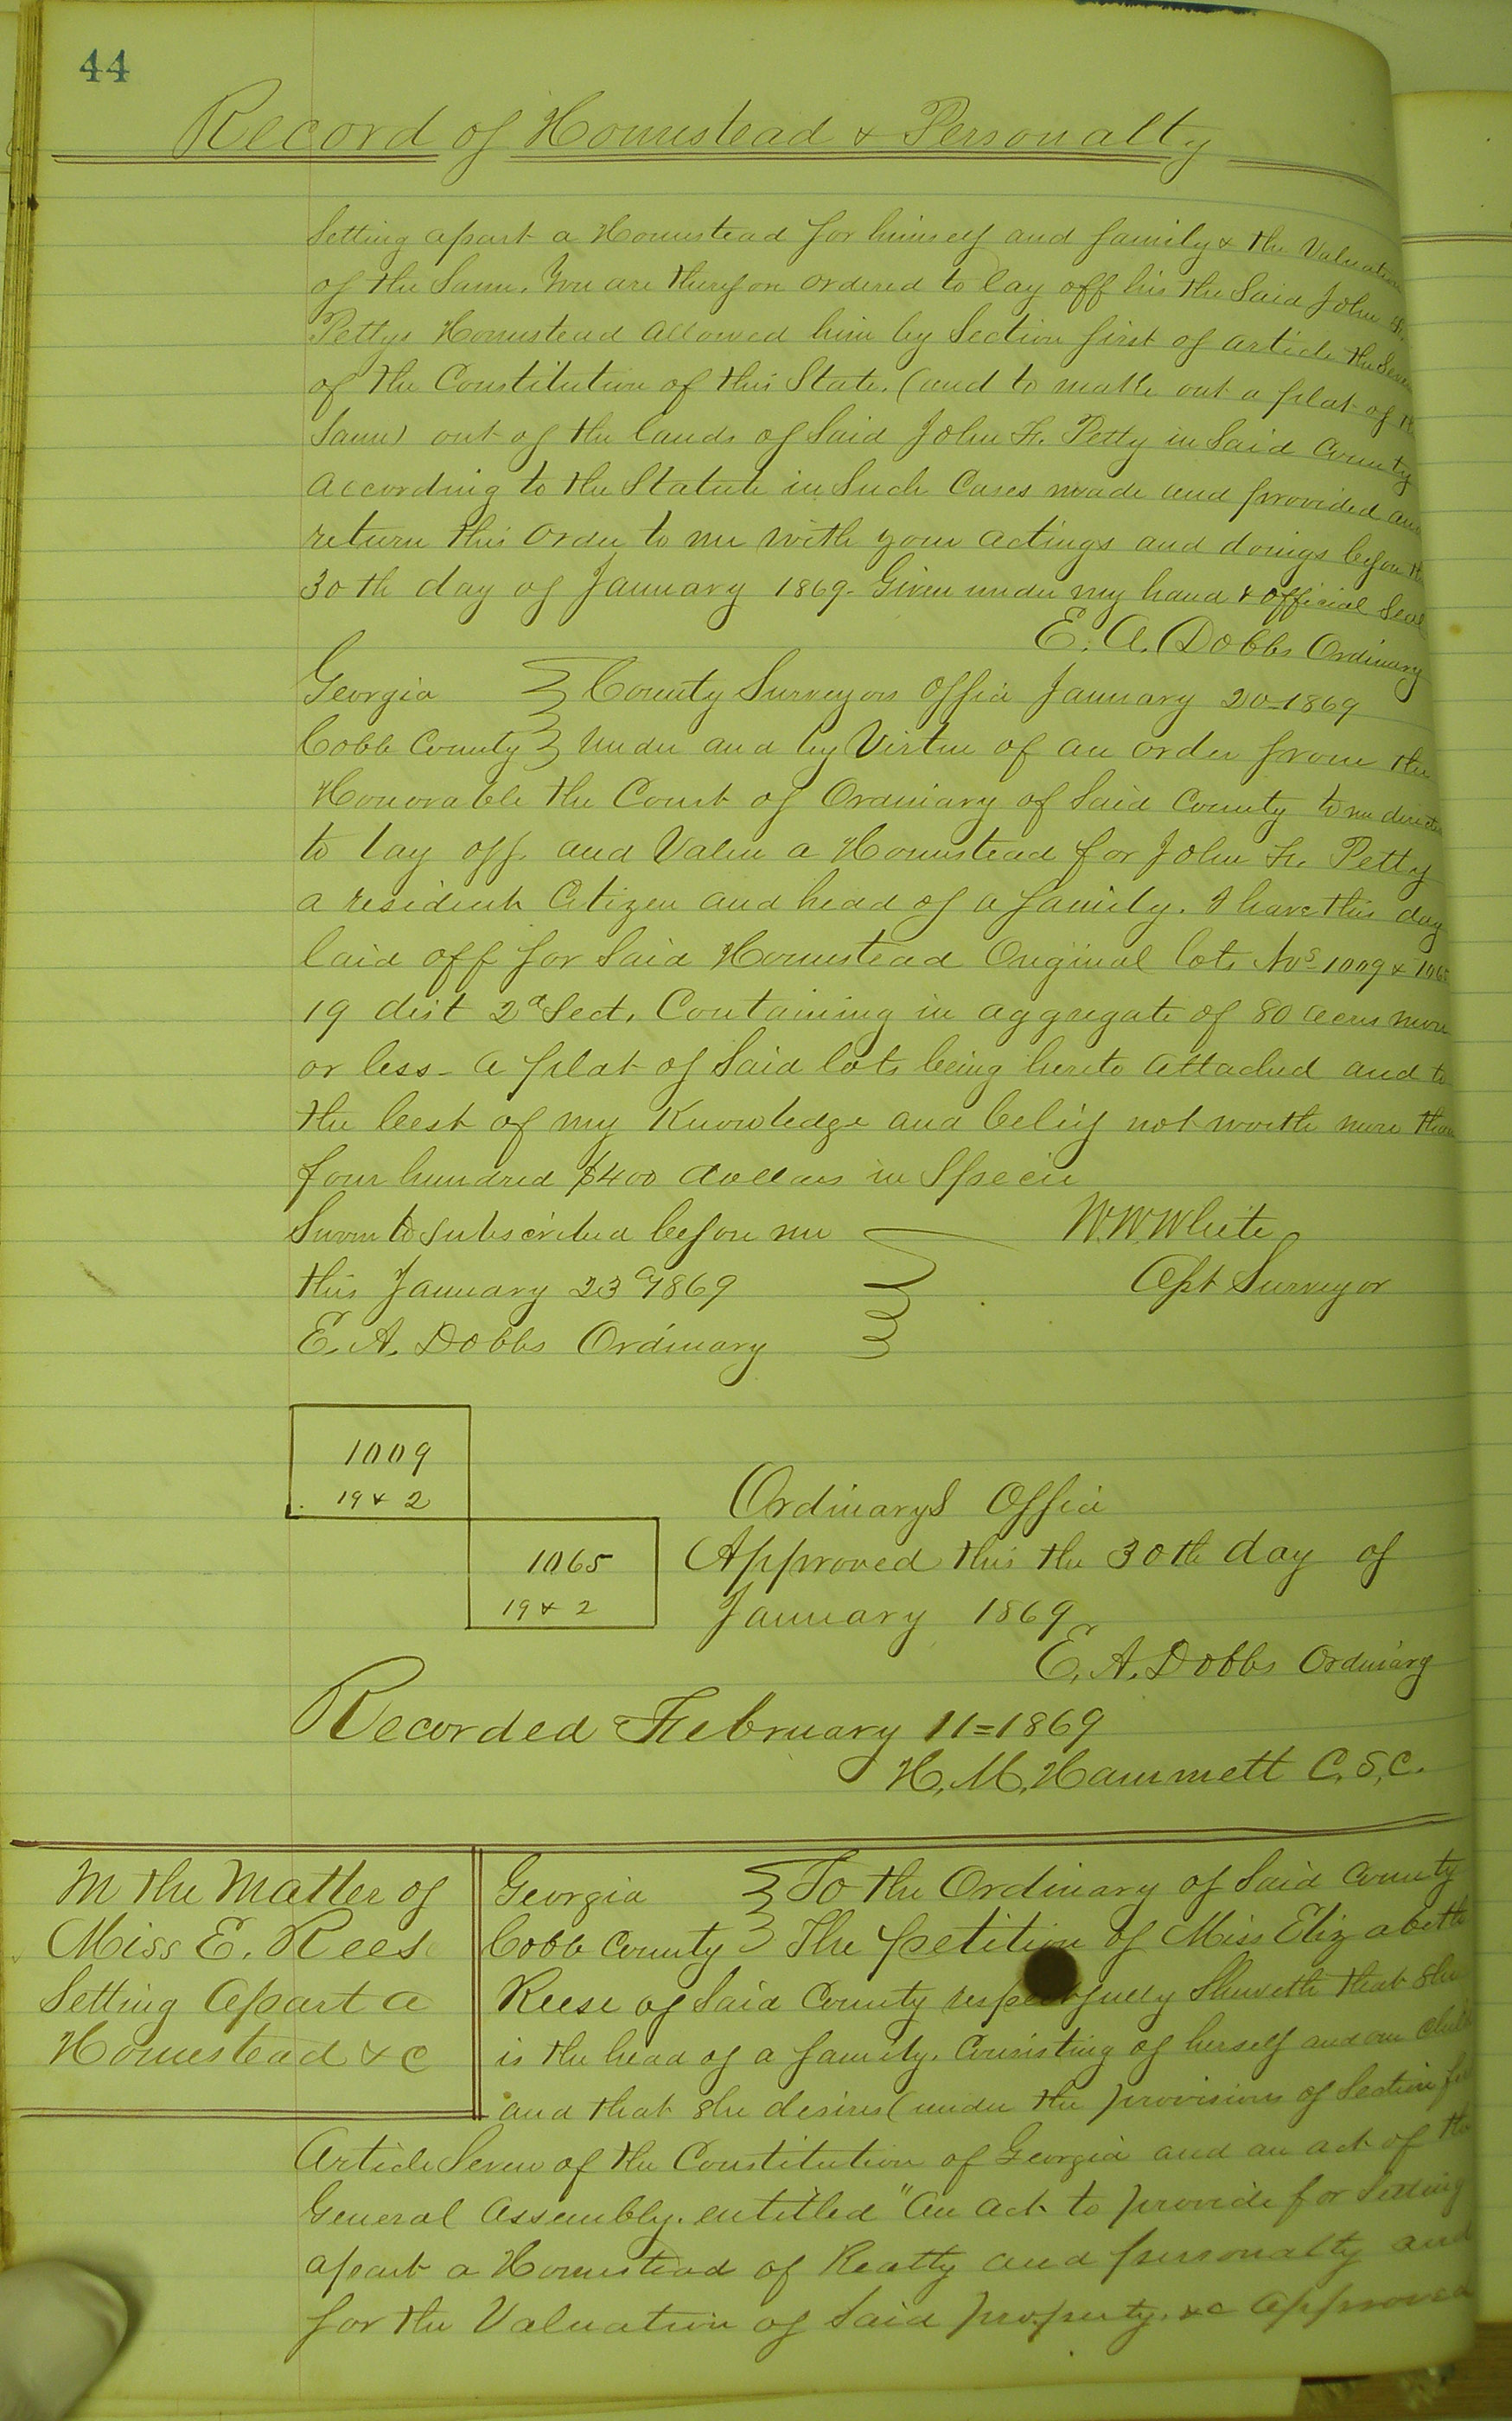 44
Record of Homestead & Personalty
Setting apart a Homestead for himself and family & the Valuation
of the Same. You are therefore ordered to lay off his the Said John F.
Pettys Homestead allowed him by Section first of article the Seven
of the Constitution of this State. (and to make out a plat of the
Same) out of the lands of Said John F. Petty in Said County
According to the Statute in Such Cases made and provided and
return this Order to me with your actings and doings before the
30th day of January 1869. Given under my hand & official Seal
E. A. Dobbs Ordinary
Georgia County Surveyors Office January 20=1869
Cobb County Under and by Virtue of an order from the
Honorable the Court of Ordinary of Said County to me directed
to lay off and Value a Homestead for John F. Petty
a resident Citizen and head of a family. I have this day
laid off for Said Homestead Original lots Nos 1009 & 1065
19 dist 2d Sect. Containing in aggregate of 80 acres more
or less - a plat of Said lots being hereto attached and to
the best of my Knowledge and belief not worth more than
four hundred $400 dollars in Specie
Sworn to Subscribed before me W. W. White
this January 23d 1869 Apt Surveyor
E. A. Dobbs Ordinary
1009
19 & 2
1065
19 & 2
Ordinarys Office
Approved this the 30th day of
January 1869
E. A. Dobbs Ordinary
Recorded February 11=1869
H. M. Hammett C. S. C.
In the Matter of
Miss E. Rees
Setting Apart a
Homestead &c
Georgia To the Ordinary of Said County
Cobb County The petition of Miss Elizabeth
Reese of Said County respectfully Sheweth that She
is the head of a family. Consisting of herself and one child
and that she desires (under the provisions of Section first
Article Seven of the Constitution of Georgia and an act of the
General Assembly. entitled "An Act to provide for Setting
apart a Homestead of Realty and personalty and
for the Valuation of Said property. &c Approved